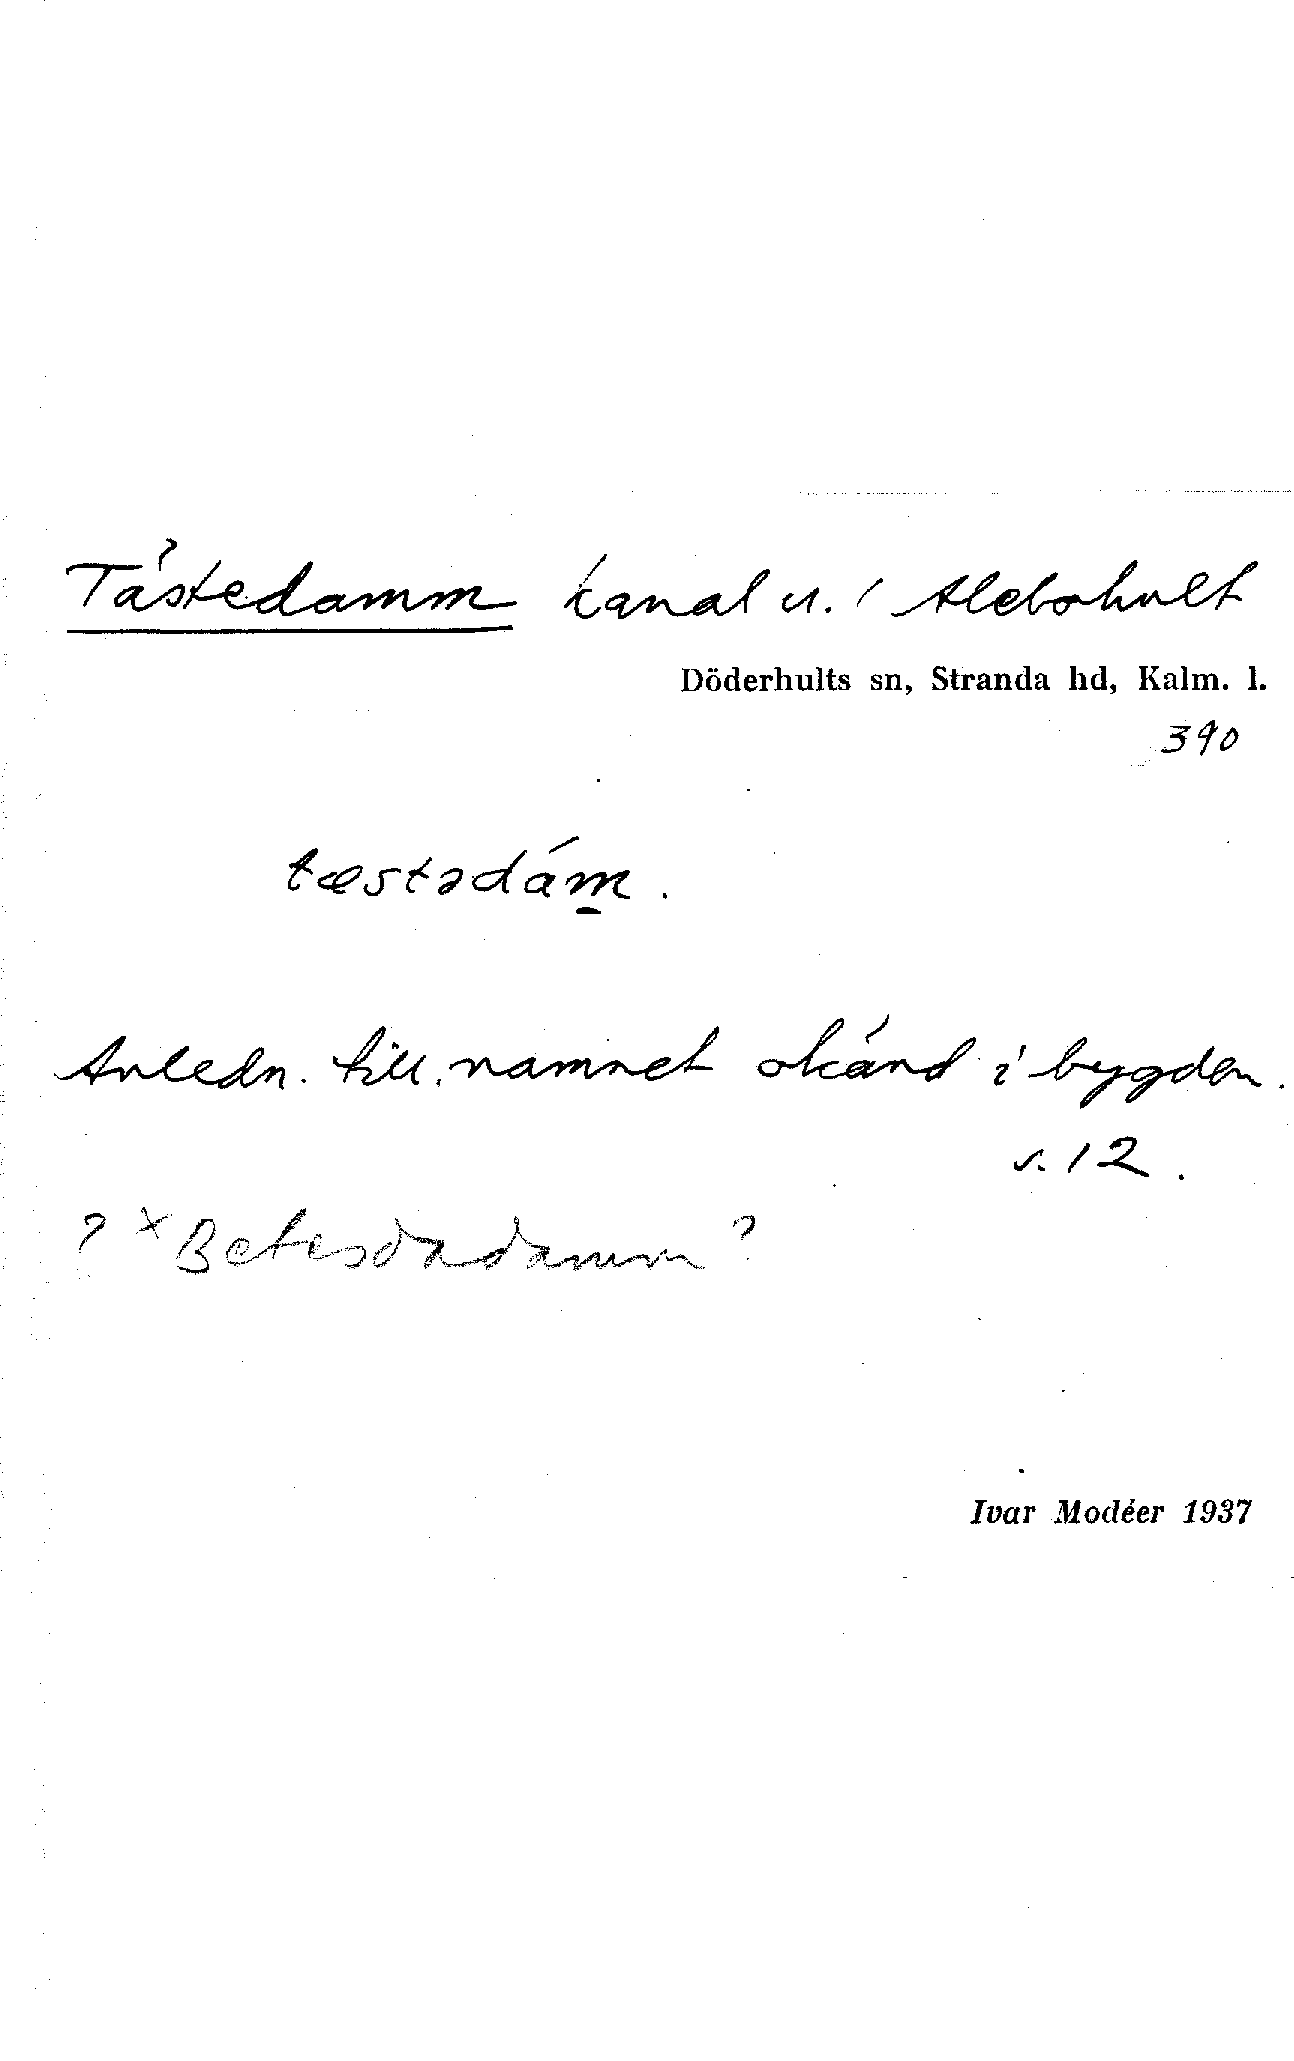 Tästedamm kanal u. i Alebohult
Döderhults sn, Stranda hd, Kalm. l.
390
tæstədám.
Anledn. till namnet okänd i bygden.
s. 12.
? × Betesdadamm ?
Ivar Modéer 1937